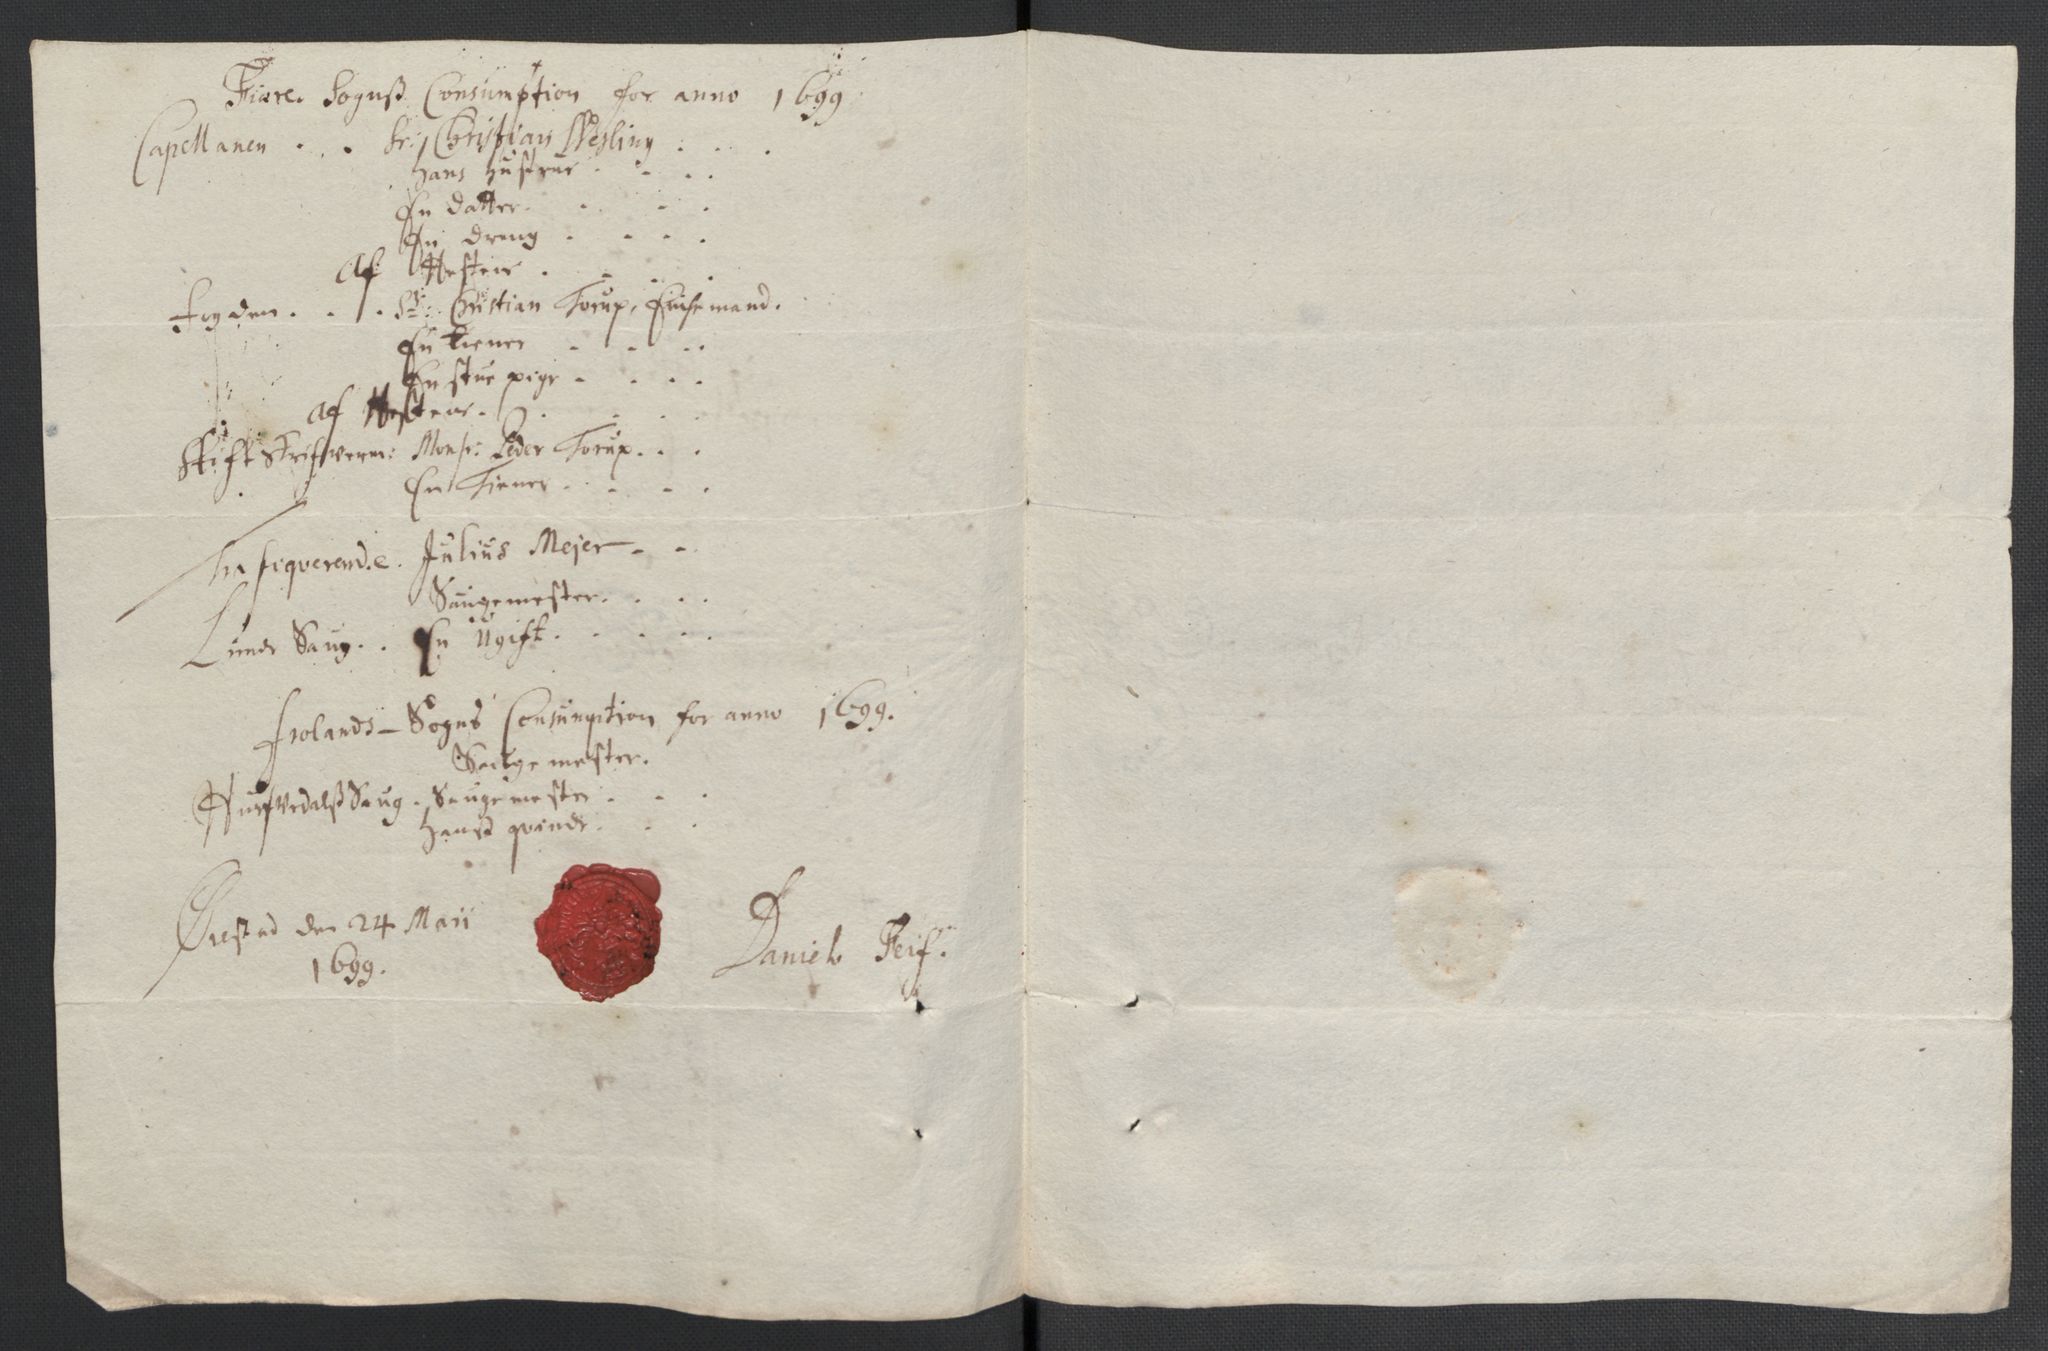 Fiære Sognß Consumption for anno 1699
Capellanen . . Hr: Christian Wesling . . .
hans hustrue . . . .
En datter . . . .
En dreng . . . .
Af Hesten . . . .
Fogden . . . Sr: Christian Torup, Enchemand.
En tiener . . . .
En stue pige . . . .
Af Hesten . . . . .
Skrifveren: Monsr: Peder Torup . . .
En Tiener . . . .
Julius Mejer . .
Saugemester . . . .
Lunde Saug . . En Ugift . . . . .
Frolands Sogns Consumption for anno 1699.
Saugemester.
Saug . Saugemester . . .
Hansd qvinde . . .
Øiestad den 24 Maii
1699.
Daniels Feif.